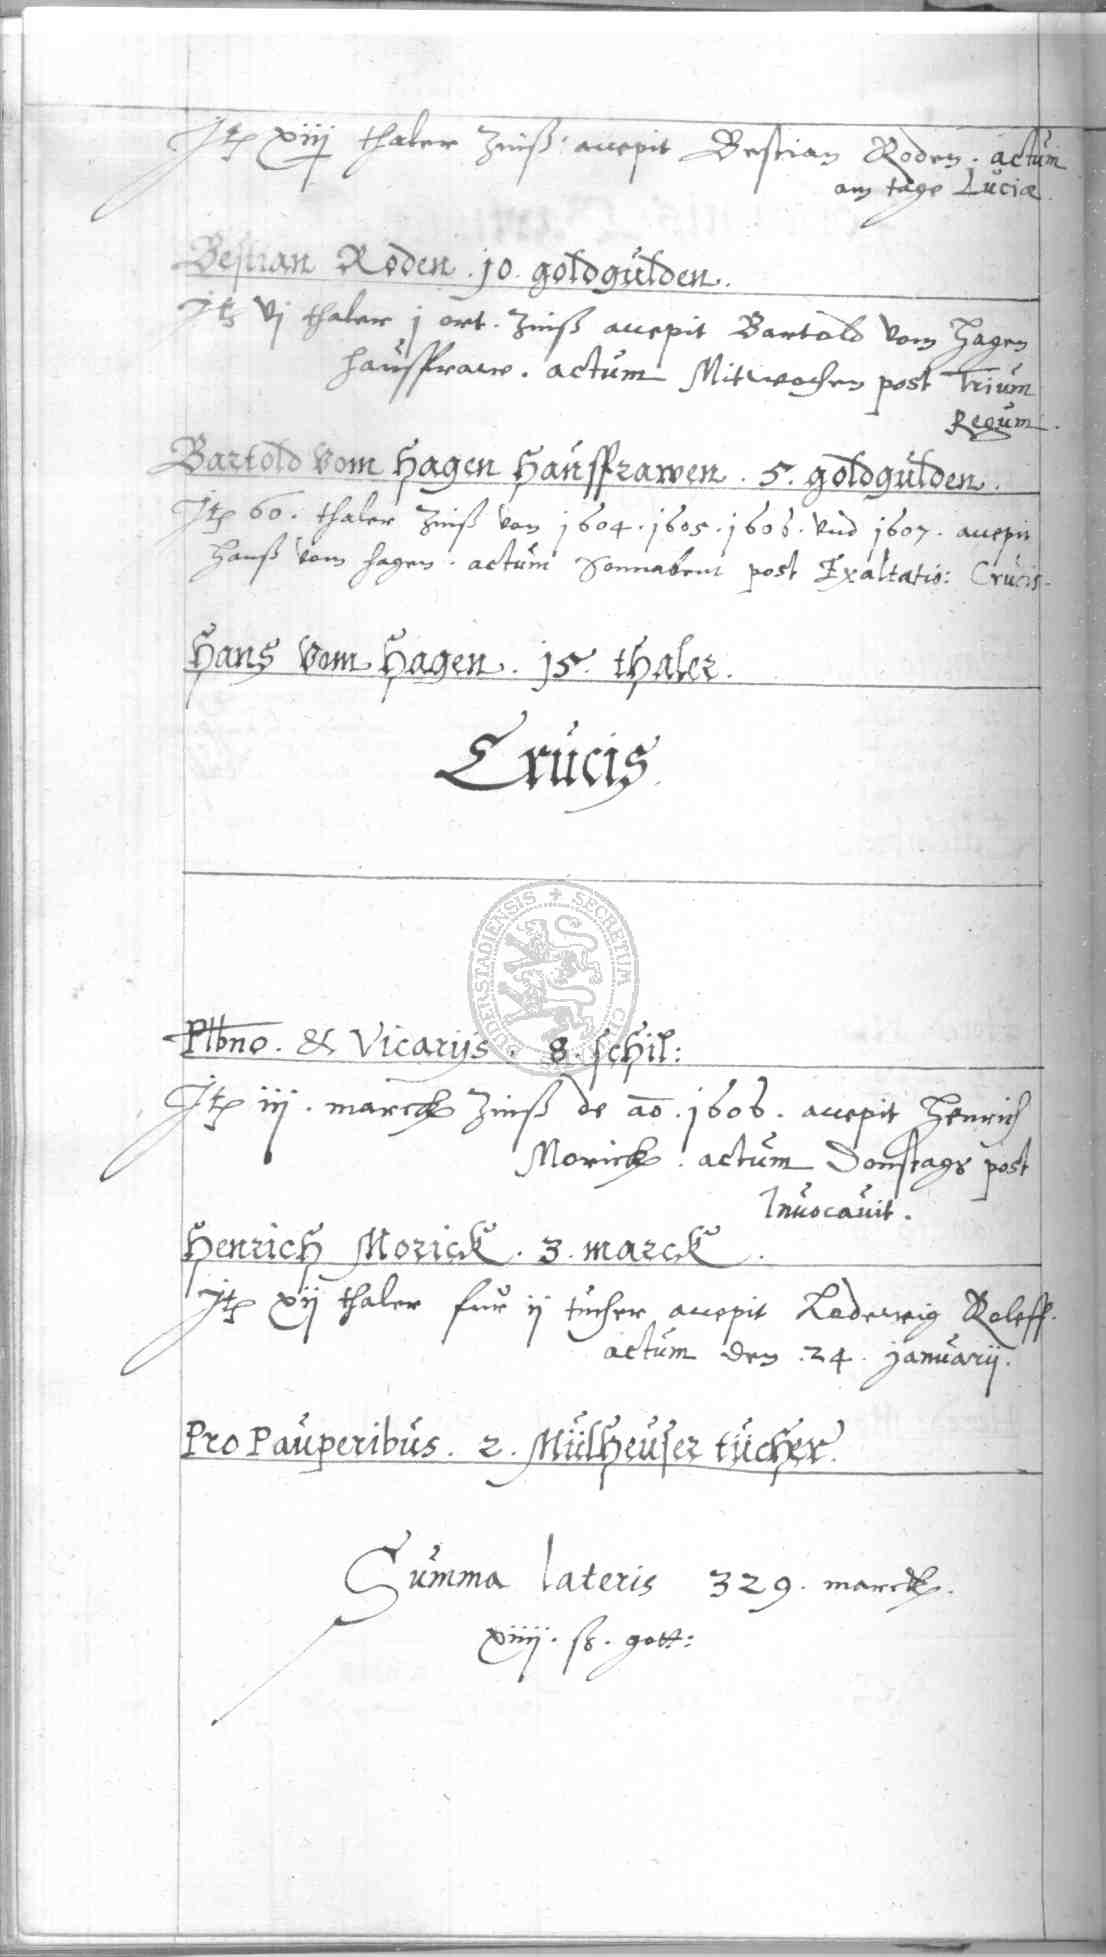 Itē xiij thaler Zinß accepit Bestian Roden. actum
am tage Luciæ.
Bestian Roden. 10. goldgulden.
Itē vj thaler j ort. Zinß accepit Bartold vom Hagen
haussfraw. actum Mitwochen post Trium
Regum.
Bartold vom Hagen Haussfrawen. 5. goldgulden.
Itē 60. thaler Zinß von 1604. 1605. 1606. vnd 1607. accepit
Hanß vom Hagen. actum Sonnabent post Exaltatio: Crucis.
Hans vom Hagen. 15. thaler.
Crucis.
DUDERSTADIENSIS + SECRETUM
Plbno. & Vicarijs. 8. schil:
Itē iij. marck Zinß de ao. 1606. accepit Henrich
Morick. actum Donstags post
Inuocauit.
Henrich Morick. 3. marck.
Itē xij thaler fur ij tucher accepit Lodewig Roleff.
actum den. 24. januarij.
Pro Pauperibus. 2. Mülheuser tücher.
Summa lateris 329. marck.
xiiij. ß. gott: